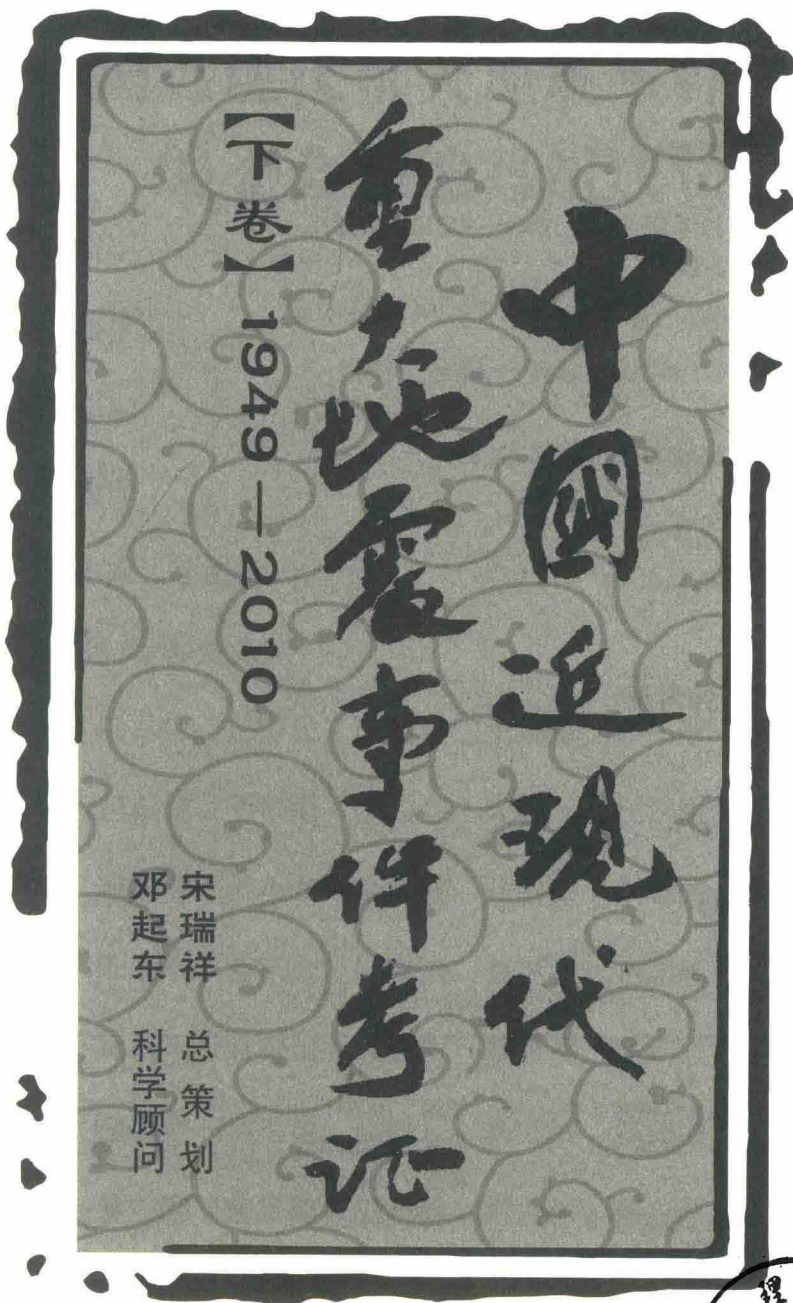 中國近现代
重大地震事件考证
【下卷】1949—2010
宋瑞祥 总策划
邓起东 科学顾问